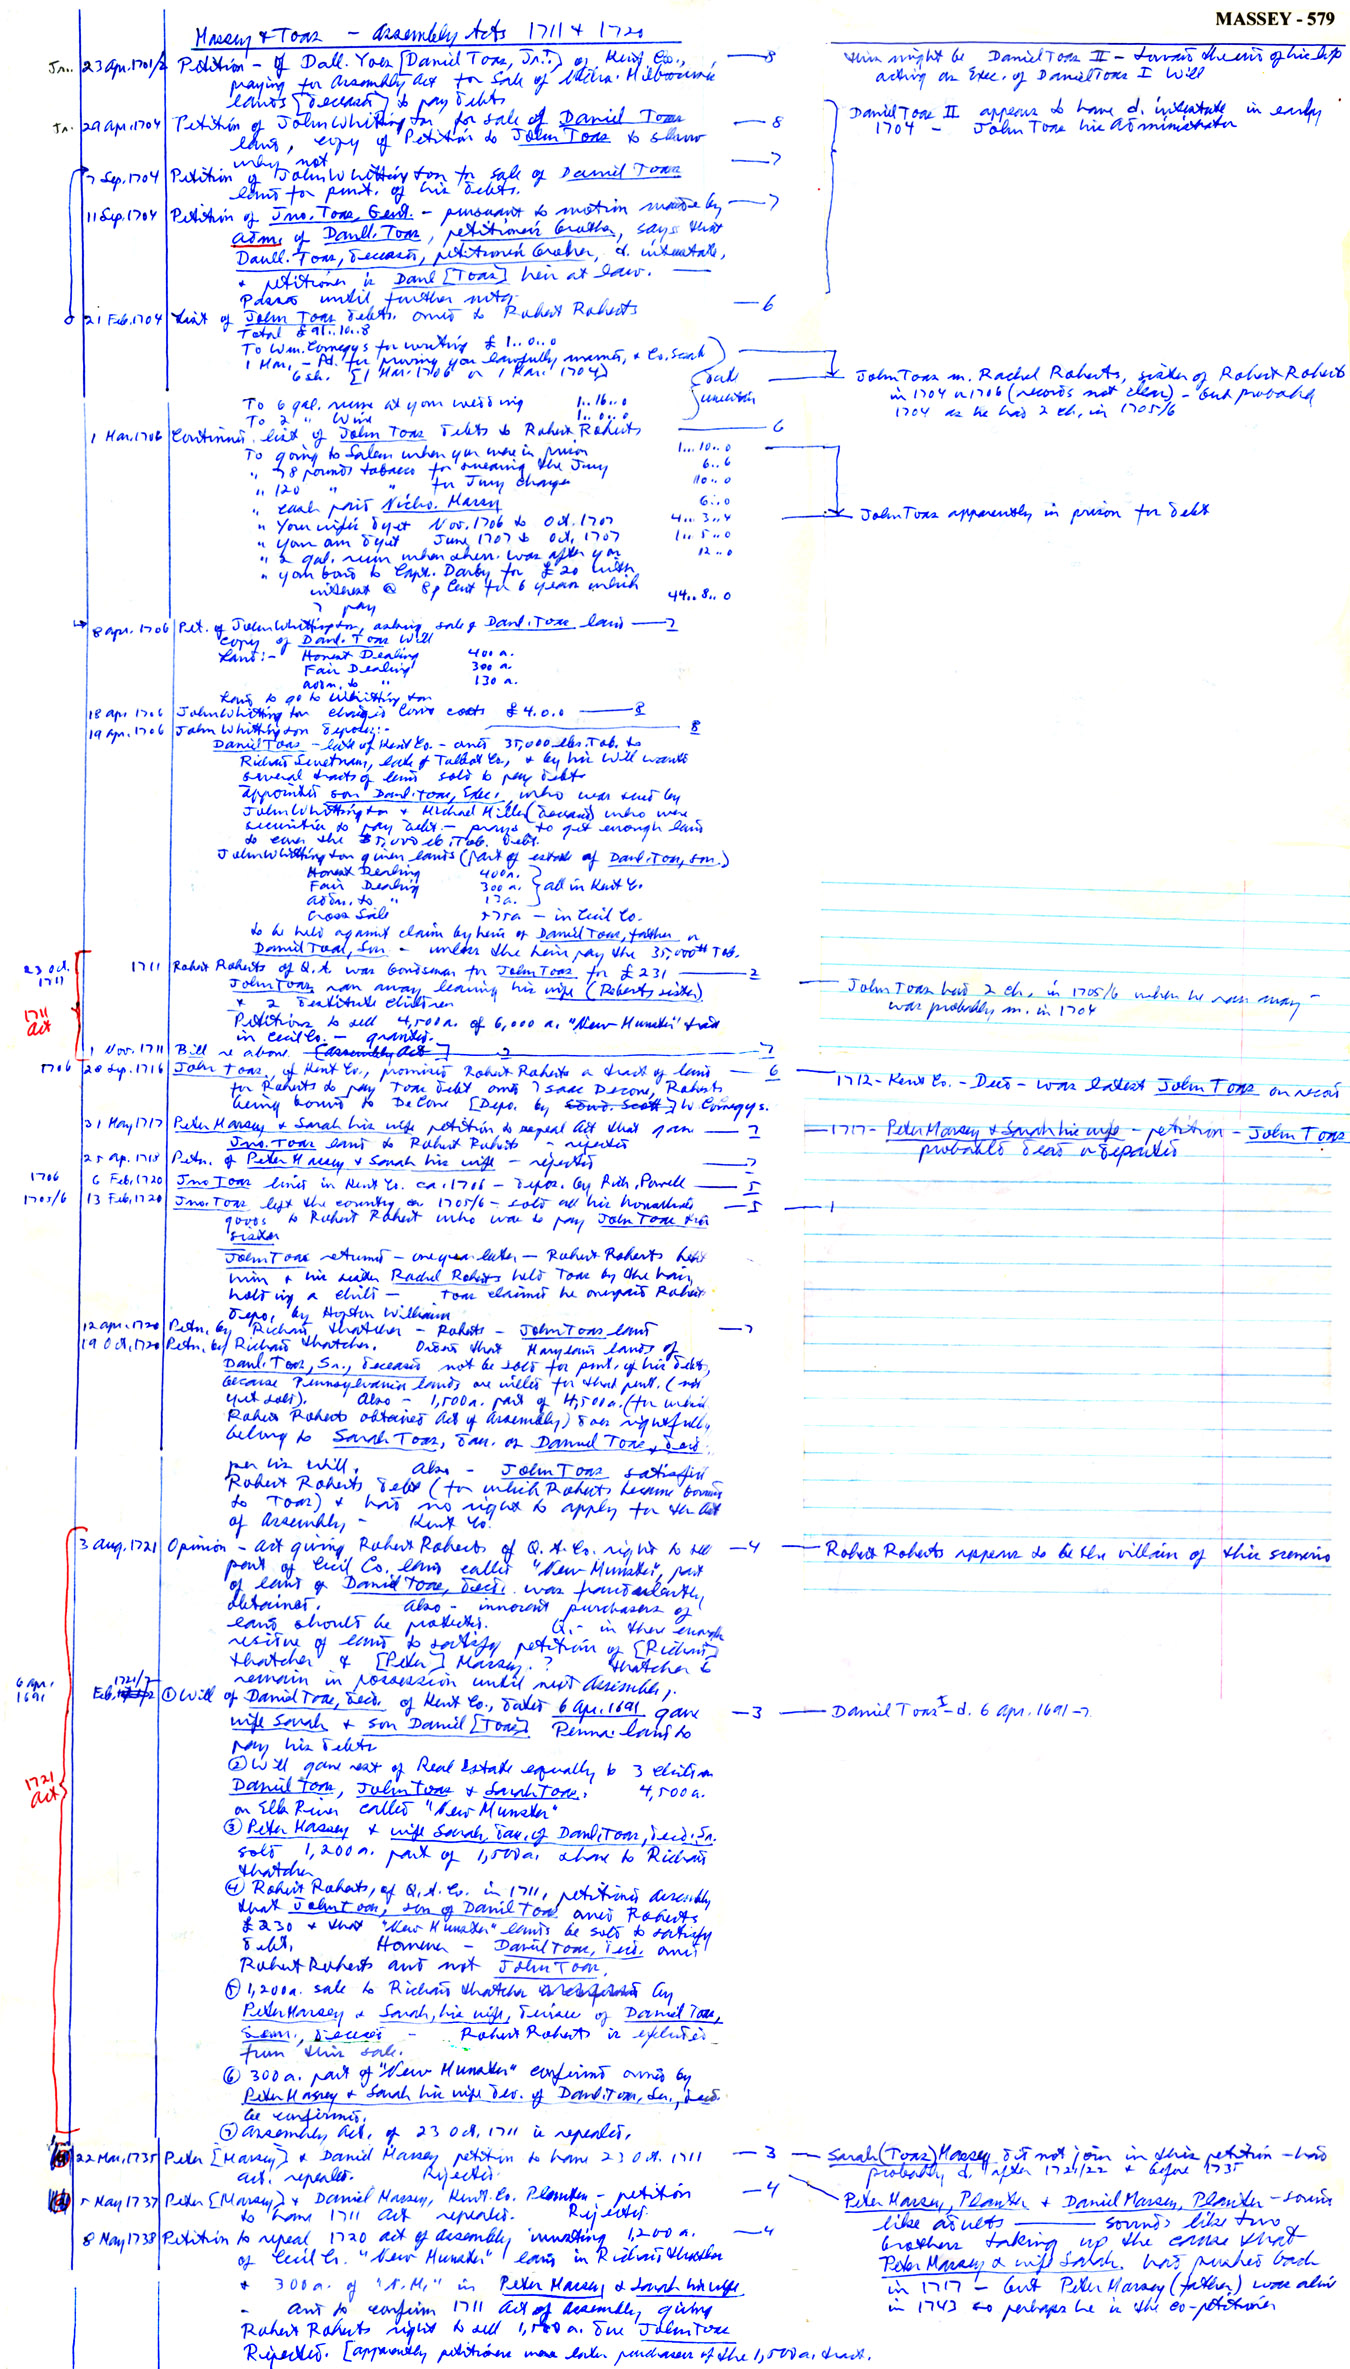 MASSEY - 579
Massey & Toas - Assembly Acts 1711 & 1720
Jr.. 23 Apr. 1701/2 Petition - of Dall. Yoes [Daniel Toas, Jr.?] of Kent Co., - 8
praying for Assembly Act for Sale of Milbourne
lands [deceased] to pay debts
This might be Daniel Toas II - towards the end of his life
acting as Exec. of Daniel Toas I Will
Jr. 29 Apr. 1704 Petition of John Whittington for sale of Daniel Toas - 8
land, copy of Petition to John Toas to show
why not - 7
Daniel Toas II appears to have d. intestate in early
1704 - John Toas his Administrator
7 Sep. 1704 Petition of John Whittington for sale of Daniel Toas
land for pmt. of his debts.
11 Sep. 1704 Petition of Jno. Toas, Gent. - pursuant to motion made by - 7
Adms of Danll. Toas, petitioner's brother, says that
Danll. Toas, deceased, petitioner's brother, d. intestate,
& petitioner is Danl [Toas] heir at law.
Passed until further notice
21 Feb. 1704 List of John Toas debts owed to Robert Roberts - 6
Total £91..10..8
To Wm. Comegys for writing £1..0..0
1 Mar. - Pd. for proving you lawfully married, & Co. Seal
6 sh. [1 Mar. 1706 or 1 Mar. 1704]
date uncertain
John Toas m. Rachel Roberts, sister of Robert Roberts
in 1704 or 1706 (records not clear) - but probably
1704 as he had 2 ch. in 1705/6
To 6 gal. rum at your wedding 1..16..0
To 2 " Wine 1..0..0
1 Mar. 1706 Continued list of John Toas debts to Robert Roberts - 6
To going to Salem when you were in prison 1..10..0
" 78 pounds tobacco for swearing the Jury 6..6
" 120 " " for Jury charges 10..0
" cash paid Nicho. Massy 6..0
" Your wife's dyet Nov. 1706 to Oct. 1707 4..3..4
" your own dyet June 1707 to Oct. 1707 1..5..0
" 2 gal. rum when sherr. was after you 12..0
" your bond to Capt. Darby for £20 with
interest @ 8 p Cent for 6 years which
I pay 44..8..0
John Toas apparently in prison for debt
8 Apr. 1706 Pet. of John Whittington, asking sale of Danl. Toas land - 7
copy of Danl. Toas Will
Land:- Honest Dealing 400 a.
Fair Dealing 300 a.
Addn. to " 130 a.
Land to go to Whittington
18 Apr. 1706 John Whittington charged Court costs £4.0.0 - 8
19 Apr. 1706 John Whittington deposes:- 8
Daniel Toas - late of Kent Co. - owed 35,000 lbs. Tob. to
Richard Sweetnam, late of Talbot Co., & by his Will wanted
several tracts of land sold to pay debts
Appointed son Danl. Toas, Exec., who was sued by
John Whittington & Michael Miller (deceased) who were
securities to pay debt - prays to get enough land
to cover the 35,000 lb. Tob. debt.
John Whittington given lands (part of estate of Danl. Toas, son.)
Honest Dealing 400 a.
Fair Dealing 300 a. } all in Kent Co.
Addn. to " 17 a.
Cross Sale 575 a. - in Cecil Co.
to be held against claim by heirs of Daniel Toas, father or
Daniel Toas, Son - unless the heirs pay the 35,000# Tob.
23 Oct. 1711 1711 Robert Roberts of Q.A. was bondsman for John Toas for £231 - 2
John Toas ran away leaving his wife (Roberts sister)
& 2 destitute children
Petitions to sell 4,500 a. of 6,000 a. "New Munster" tract
in Cecil Co. - granted.
1711 Act
John Toas had 2 ch. in 1705/6 when he ran away -
was probably m. in 1704
1 Nov. 1711 Bill re above. [Assembly Act] - 7
1706 28 Sep. 1716 John Toas, of Kent Co., promised Robert Roberts a tract of land - 6
for Roberts to pay Toas debt owed Isaac Decone, Roberts
being bound to DeCone [Depo. by W Comegys.
1712 - Kent Co. - Deed - was latest John Toas on record
31 May 1717 Peter Massey & Sarah his wife petition to repeal Act that gave - 7
Jno. Toas land to Robert Roberts - rejected
1717 - Peter Massey & Sarah his wife - petition - John Toas
probably dead or departed
25 Ap. 1718 Petn. of Peter Massey & Sarah his wife - rejected - 7
1706 6 Feb. 1720 Jno Toas lived in Kent Co. ca. 1706 - depos. by Rich. Powell - 5
1705/6 13 Feb. 1720 Jno. Toas left the country in 1705/6 - sold all his household - 5
goods to Robert Robert who was to pay John Toas his
sister
John Toas returned - one year later - Robert Roberts beat
him & his sister Rachel Roberts held Toas by the hair,
holding a child - Toas claimed he overpaid Robert
Depo. by Hopton Williams
12 Apr. 1720 Petn. by Richard Thatcher - Roberts - John Toas land - 7
19 Oct. 1720 Petn. by Richard Thatcher. Orders that Maryland lands of
Danl. Toas, Sr., deceased not be sold for pmt. of his debts,
because Pennsylvania lands are willed for that pmt. (not
yet sold). Also - 1,500 a. part of 4,500 a. (for which
Robert Roberts obtained Act of Assembly) does rightfully
belong to Sarah Toas, dau. of Daniel Toas, decd.
per his Will. Also - John Toas satisfied
Robert Roberts debt (for which Roberts became bound
to Toas) & had no right to apply for the Act
of Assembly - Kent Co.
3 Aug. 1721 Opinion - Act giving Robert Roberts of Q.A. Co. right to sell - 4
part of Cecil Co. land called "New Munster", part
of land of Daniel Toas, decd. was fraudulently
obtained. Also - innocent purchasers of
land should be protected. Q. - is there enough
residue of land to satisfy petition of [Richard]
Thatcher & [Peter] Massey? Thatcher to
remain in possession until next Assembly.
Robert Roberts appears to be the villain of this scenario
6 Apr. 1691 Feb. 1721/2 ① Will of Daniel Toas, decd. of Kent Co., dated 6 Apr. 1691 gave - 3
wife Sarah & son Daniel [Toas] Penna. land to
pay his debts
Daniel Toas I - d. 6 Apr. 1691 - ?
② Will gave rest of Real Estate equally to 3 children
Daniel Toas, John Toas & Sarah Toas. 4,500 a.
on Elk River called "New Munster"
1721 Act
③ Peter Massey & wife Sarah, dau. of Danl. Toas, decd. Sr.
sold 1,200 a. part of 1,500 a. share to Richard
Thatcher
④ Robert Roberts, of Q.A. Co. in 1711, petitioned Assembly
that John Toas, son of Daniel Toas owed Roberts
£230 & that "New Munster" lands be sold to satisfy
debt. However - Daniel Toas, decd. owed
Robert Roberts and not John Toas.
⑤ 1,200 a. sale to Richard Thatcher by
Peter Massey & Sarah, his wife, devisee of Daniel Toas,
Senr., deceased - Robert Roberts is excluded
from this sale.
⑥ 300 a. part of "New Munster" confirmed owned by
Peter Massey & Sarah his wife dev. of Danl. Toas, Sr., decd.
be confirmed.
⑦ Assembly Act. of 23 Oct. 1711 is repealed.
22 Mar. 1735 Peter [Massey] & Daniel Massey petition to have 23 Oct. 1711 - 3
act. repealed. Rejected
Sarah (Toas) Massey did not join in this petition - had
probably d. after 1721/22 & before 1735
5 May 1737 Peter [Massey] & Daniel Massey, Kent Co. Planters - petition - 4
to have 1711 Act repealed. Rejected
Peter Massey, Planter & Daniel Massey, Planter - sounds
like adults - sounds like two
brothers taking up the cause that
Peter Massey & wife Sarah had pushed back
in 1717 - but Peter Massey (father) was alive
in 1743 so perhaps he is the co-petitioner
8 May 1738 Petition to repeal 1720 act of Assembly investing 1,200 a. - 4
of Cecil Co. "New Munster" land in Richard Thatcher
& 300 a. of "N.M." in Peter Massey & Sarah his wife
- and to confirm 1711 Act of Assembly giving
Robert Roberts right to sell 1,500 a. due John Toas
Rejected. [apparently petitioners were later purchasers of the 1,500 a. tract.